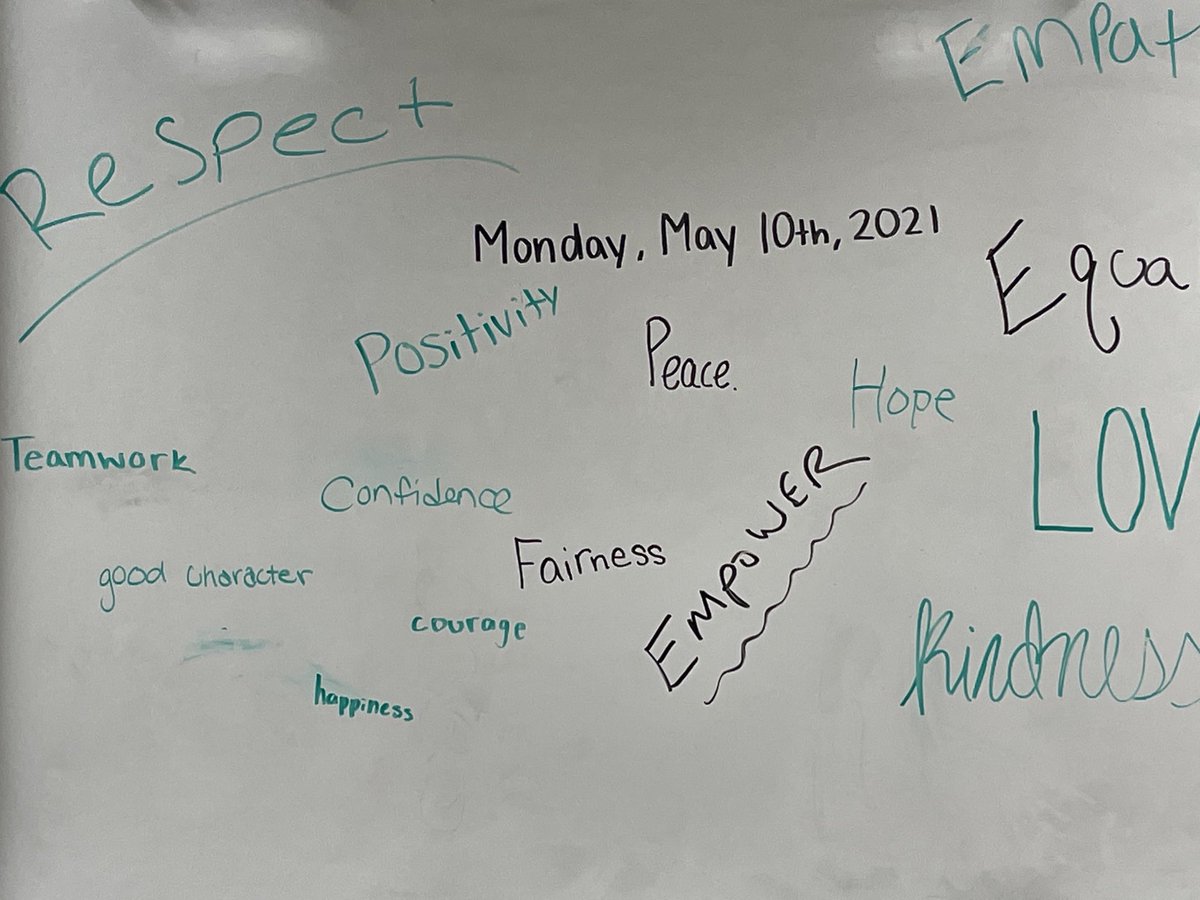 Empat
Respect
Monday, May 10th, 2021
Equa
Positivity
Peace.
Hope
LOV
Teamwork
Confidence
EMPOWER
Fairness
good character
courage
kindness
happiness